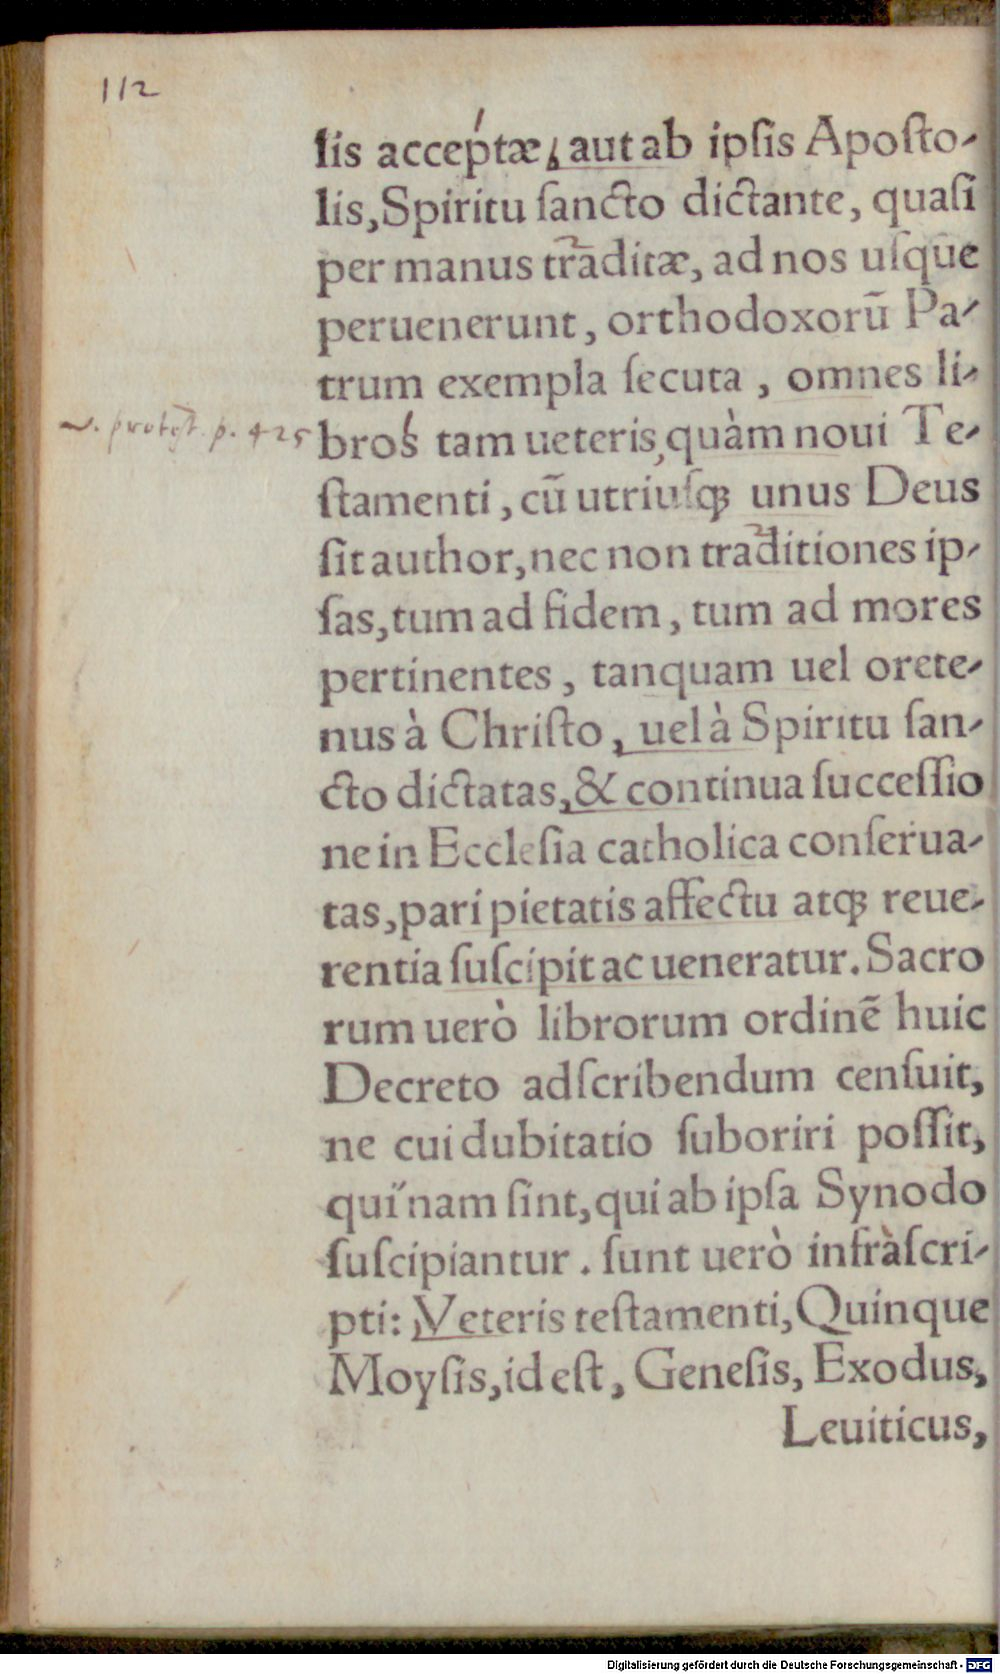 112
lis acceptæ, aut ab ipſis Apoſto-
lis, Spiritu ſancto dictante, quaſi
per manus traditæ, ad nos uſque
peruenerunt, orthodoxorũ Pa-
trum exempla ſecuta, omnes li-
v. proteſt. p. 425
bros tam ueteris, quàm noui Te-
ſtamenti, cũ utriuſqꝫ unus Deus
ſit author, nec non traditiones ip-
ſas, tum ad fidem, tum ad mores
pertinentes, tanquam uel orete-
nus à Chriſto, uel à Spiritu ſan-
cto dictatas, & continua ſucceſſio
ne in Eccleſia catholica conſerua-
tas, pari pietatis affectu atqꝫ reue-
rentia ſuſcipit ac ueneratur. Sacro
rum uerò librorum ordinẽ huic
Decreto adſcribendum cenſuit,
ne cui dubitatio ſuboriri poſſit,
quinam ſint, qui ab ipſa Synodo
ſuſcipiantur. ſunt uerò infràſcri-
pti: Veteris teſtamenti, Quinque
Moyſis, id eſt, Geneſis, Exodus,
Leuiticus,
Digitalisierung gefördert durch die Deutsche Forschungsgemeinschaft - DFG